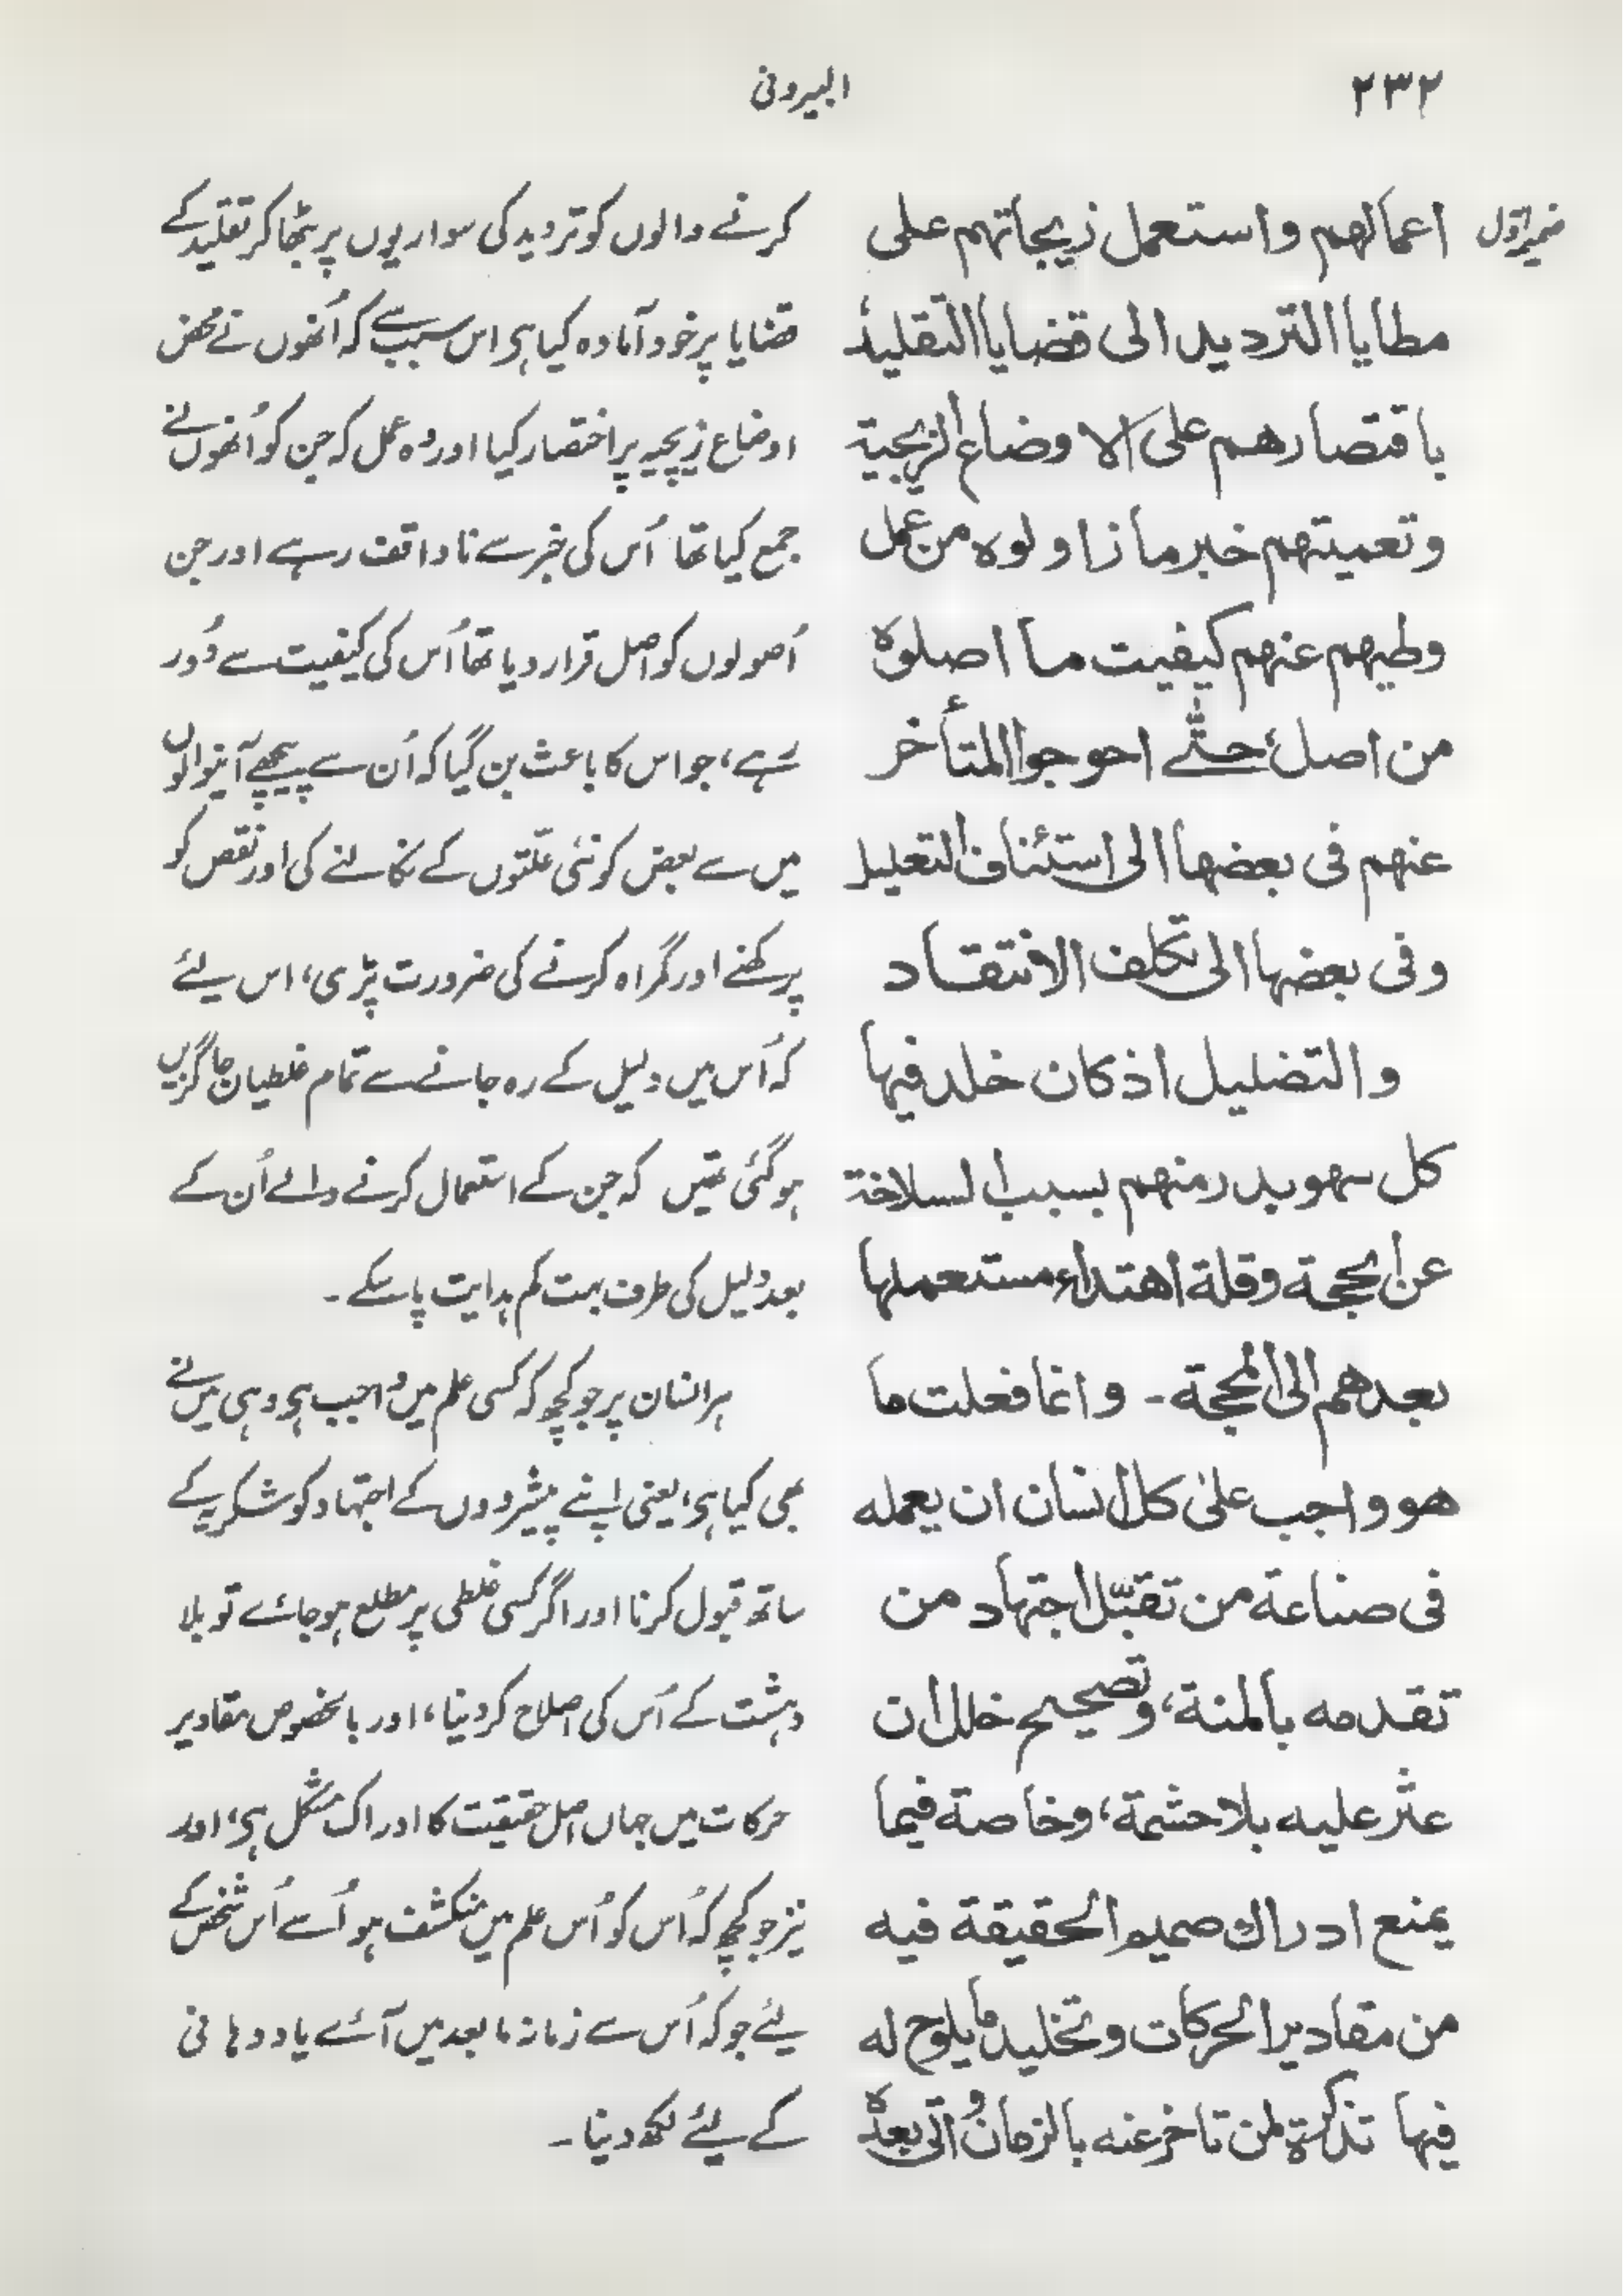 ۲۳۲
البیرونی
ضمیمۂ اوّل
اعمالهم واستعمل زيجاتهم على
مطايا الترديد الى قضايا التقليد
باقتصارهم على الاوضاع الزيجية
وتعميتهم خبر ما زاولوه من عمل
وطيهم عنهم كيفيت ما اصلوه
من اصل، حتّٰى احوجوا المتأخر
عنهم فى بعضها الى استئناف التعليل
وفى بعضها الى تكلف الانتقاد
والتضليل اذ كان خلد فيها
كل سهو بدر منهم بسبب السلاخة
عن الحجة وقلة اهتداء مستعملها
بعدهم الى المحجة۔ وانما فعلت ما
هو واجب علىٰ كل انسان ان يعمله
فى صناعة من تقبّل اجتهاد من
تقدمه بالمنة، وتصحيح خلل ان
عثر عليه بلا حشمة، وخاصة فيما
يمنع ادراك صميم الحقيقة فيه
من مقادير الحركات وتخليد ما يلوح له
فيها تذكرة لمن تاخر عنه بالزمان واتى بعده
کرنے والوں کو تردید کی سواریوں پر بٹھا کر تقلید کے
قضایا پر خود آمادہ کیا ہی اس سبب سے کہ اُنھوں نے محض
اوضاع زیجیہ پر اختصار کیا اور وہ عمل کہ جن کو اُنھوں نے
جمع کیا تھا اُس کی خبر سے ناواقف رہے اور جن
اُصولوں کو اصل قرار دیا تھا اُس کی کیفیت سے دُور
رہے، جو اس کا باعث بن گیا کہ اُن سے پیچھے آنیوالوں
میں سے بعض کو نئی علّتوں کے نکالنے کی اور نقص کو
پرکھنے اور گمراہ کرنے کی ضرورت پڑی، اس لیٔے
کہ اُس میں دلیل کے رہ جانے سے تمام غلطیان جاگزیں
ہوگئی تھیں کہ جن کے استعمال کرنے والے اُن کے
بعد دلیل کی طرف بہت کم ہدایت پاسکے۔
ہر انسان پر جو کچھ کہ کسی علم میں واجب ہی وہی میں نے
بھی کیا ہی، یعنی اپنے پیشرووں کے اجتہاد کو شکریہ کے
ساتھ قبول کرنا اور اگر کسی غلطی پر مطلع ہوجائے تو بلا
دہشت کے اُس کی اصلاح کر دینا، اور بالخصوص مقادیر
حرکات میں جہاں اصل حقیقت کا ادراک مشکل ہی، اور
نیز جو کچھ کہ اُس کو اُس علم میں منکشف ہو اُسے اُس شخص کے
لیٔے جو کہ اُس سے زمانہ مابعد میں آئے یاددہانی
کے لیٔے لکھ دینا۔